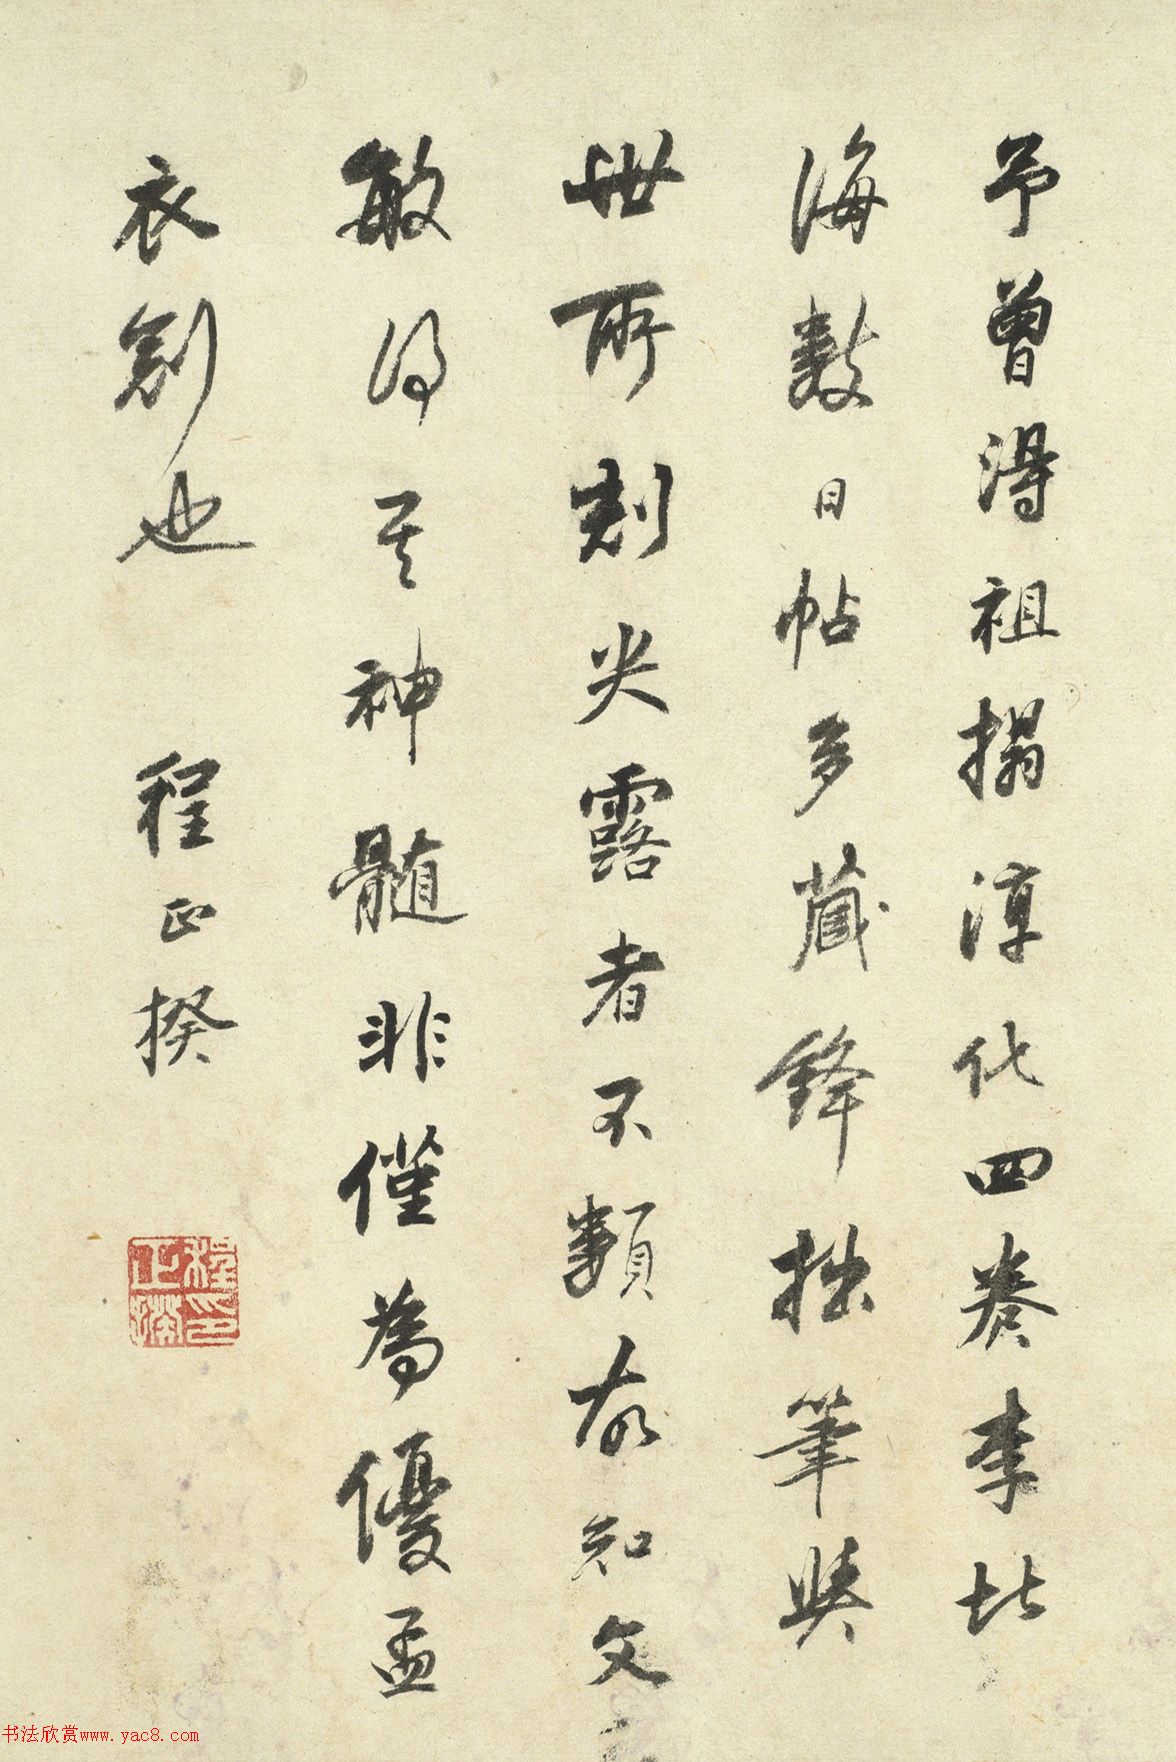 予曾得祖搨淳化四卷李北
海數日帖多藏鋒拙筆與
世所刻尖露者不類故知文
敏得其神髓非僅為優孟
衣劍也 程正揆
程正揆印
书法欣赏www.yac8.com